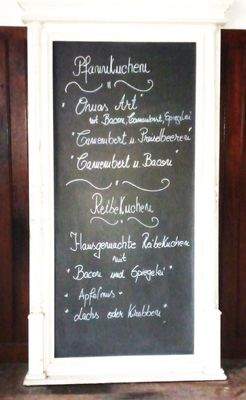 Pfannkuchen
"Omas Art"
mit Bacon, Camembert, Spiegelei
"Camembert u. Preiselbeeren"
"Camembert u. Bacon
Reibekuchen
Hausgemachte Reibekuchen
mit
"Bacon und Spiegelei"
- Apfelmus -
"Lachs oder Krabben"